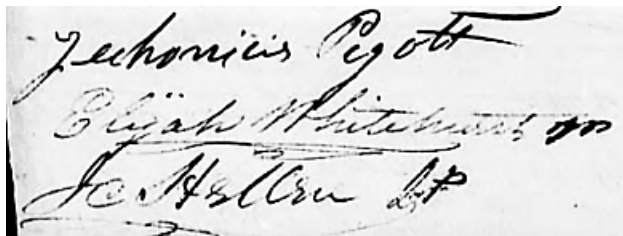 Jechonicis Pigott
Elijah Whitehurst
Jc Hellen JP